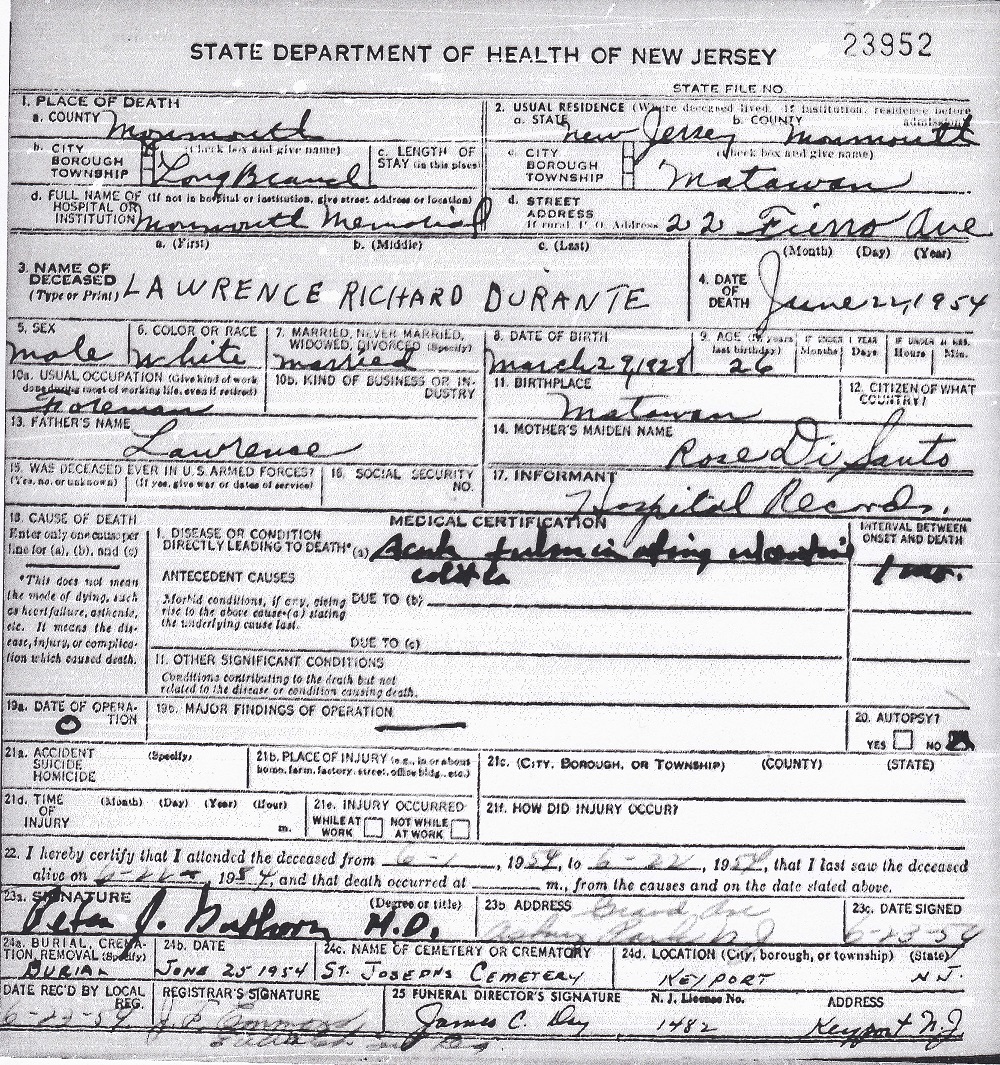 23952
STATE DEPARTMENT OF HEALTH OF NEW JERSEY
STATE FILE NO.
1. PLACE OF DEATH
a. COUNTY Monmouth
2. USUAL RESIDENCE (Where deceased lived. If institution, residence before admission)
a. STATE New Jersey b. COUNTY Monmouth
b. CITY BOROUGH TOWNSHIP (Check box and give name) Long Branch
c. LENGTH OF STAY (in this place)
c. CITY BOROUGH TOWNSHIP (Check box and give name) Matawan
d. FULL NAME OF HOSPITAL OR INSTITUTION (If not in hospital or institution, give street address or location) Monmouth Memorial
d. STREET ADDRESS If rural, P. O. Address 22 Fierro Ave
3. NAME OF DECEASED (Type or Print)
a. (First) b. (Middle) c. (Last)
LAWRENCE RICHARD DURANTE
4. DATE OF DEATH (Month) (Day) (Year)
June 22, 1954
5. SEX male
6. COLOR OR RACE white
7. MARRIED, NEVER MARRIED, WIDOWED, DIVORCED (Specify) married
8. DATE OF BIRTH March 29, 1928
9. AGE (In years last birthday) 26
IF UNDER 1 YEAR Months Days
IF UNDER 24 HRS. Hours Min.
10a. USUAL OCCUPATION (Give kind of work done during most of working life, even if retired) Foreman
10b. KIND OF BUSINESS OR INDUSTRY
11. BIRTHPLACE Matawan
12. CITIZEN OF WHAT COUNTRY?
13. FATHER'S NAME Lawrence
14. MOTHER'S MAIDEN NAME Rose Di Santo
15. WAS DECEASED EVER IN U.S. ARMED FORCES? (Yes, no, or unknown) (If yes, give war or dates of service)
16. SOCIAL SECURITY NO.
17. INFORMANT Hospital Records.
MEDICAL CERTIFICATION
18. CAUSE OF DEATH
Enter only one cause per line for (a), (b), and (c)
*This does not mean the mode of dying, such as heart failure, asthenia, etc. It means the disease, injury, or complication which caused death.
1. DISEASE OR CONDITION DIRECTLY LEADING TO DEATH* (a) Acute fulminating ulcerative colitis
INTERVAL BETWEEN ONSET AND DEATH
1 mo.
ANTECEDENT CAUSES
Morbid conditions, if any, giving rise to the above cause (a) stating the underlying cause last.
DUE TO (b)
DUE TO (c)
11. OTHER SIGNIFICANT CONDITIONS
Conditions contributing to the death but not related to the disease or condition causing death.
19a. DATE OF OPERATION 0
19b. MAJOR FINDINGS OF OPERATION —
20. AUTOPSY?
YES NO
21a. ACCIDENT SUICIDE HOMICIDE (Specify)
21b. PLACE OF INJURY (e.g., in or about home, farm, factory, street, office bldg., etc.)
21c. (CITY, BOROUGH, OR TOWNSHIP) (COUNTY) (STATE)
21d. TIME OF INJURY (Month) (Day) (Year) (Hour) m.
21e. INJURY OCCURRED
WHILE AT WORK NOT WHILE AT WORK
21f. HOW DID INJURY OCCUR?
22. I hereby certify that I attended the deceased from 6-1, 1954, to 6-22, 1954, that I last saw the deceased
alive on 6-22-, 1954, and that death occurred at m., from the causes and on the date stated above.
23a. SIGNATURE (Degree or title)
Peter J. M.D.
23b. ADDRESS Grand Ave
Asbury Park NJ
23c. DATE SIGNED
6-23-54
24a. BURIAL, CREMATION, REMOVAL (Specify) BURIAL
24b. DATE JUNE 25 1954
24c. NAME OF CEMETERY OR CREMATORY ST. JOSEPHS CEMETERY
24d. LOCATION (City, borough, or township) (State) KEYPORT N J.
DATE REC'D BY LOCAL REG. 6-23-54
REGISTRAR'S SIGNATURE J. P.
25 FUNERAL DIRECTOR'S SIGNATURE James C. Day
N. J. License No. 1482
ADDRESS Keyport N.J.